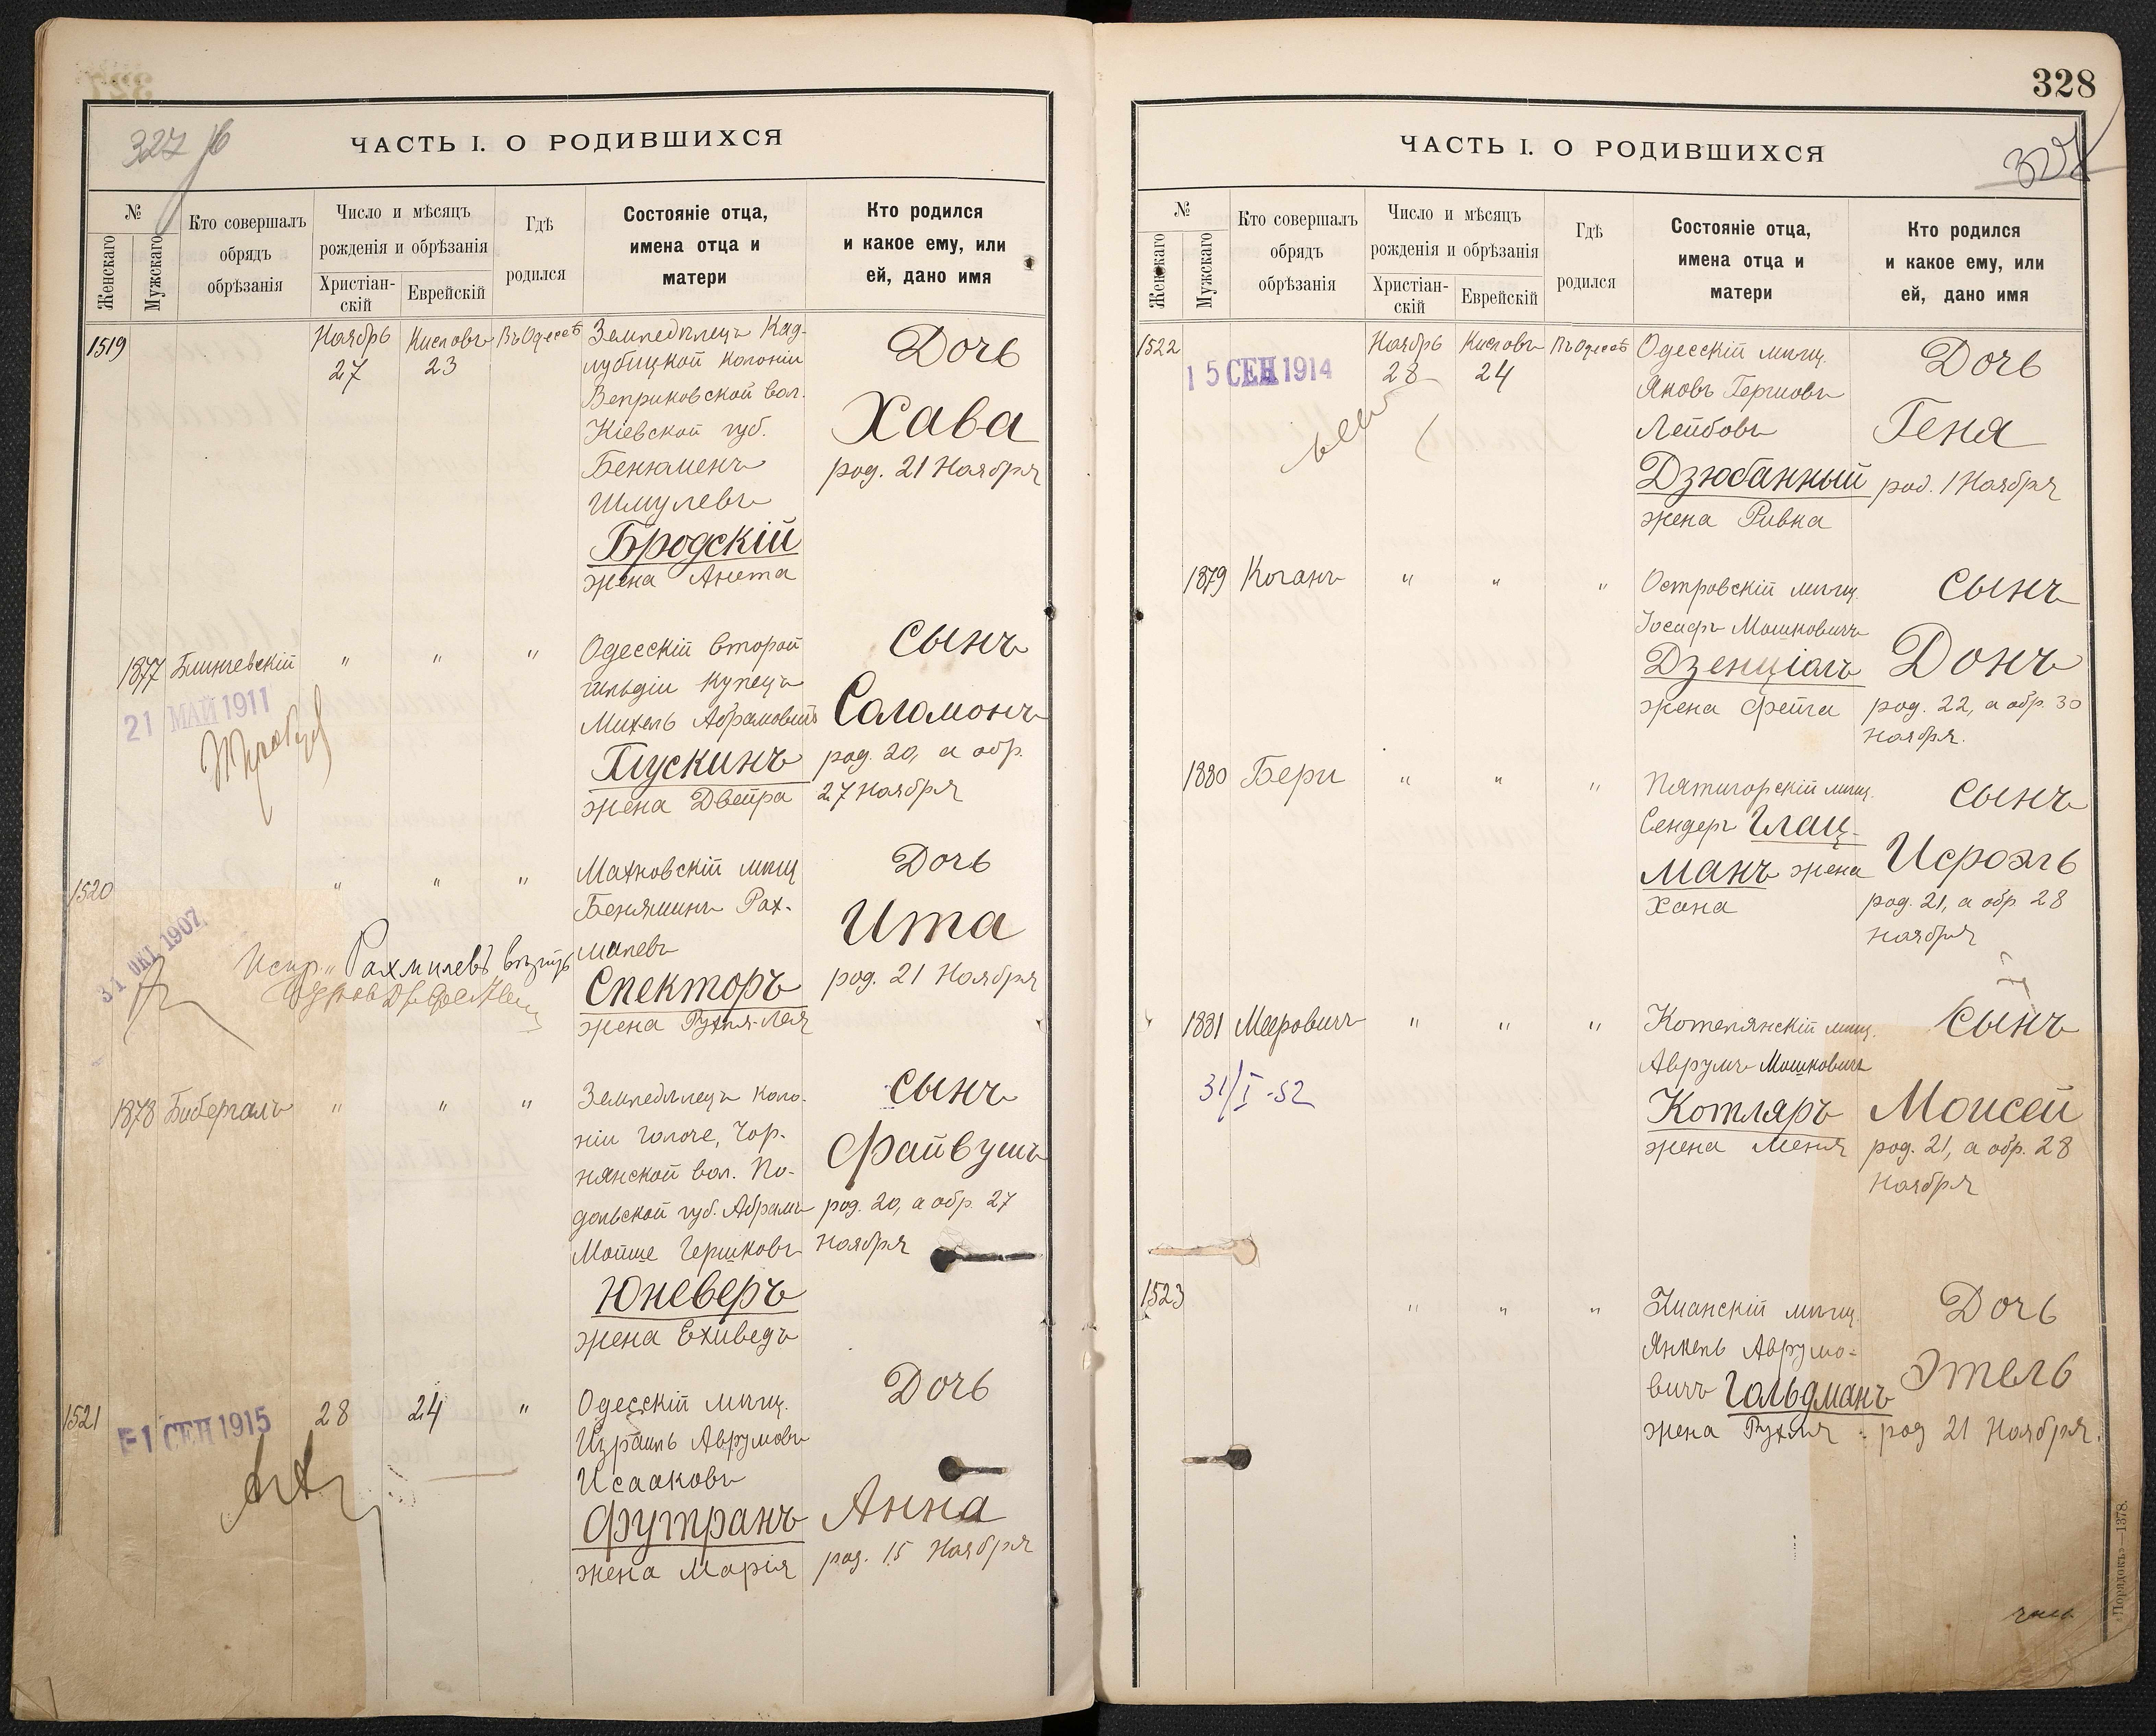 327 об
ЧАСТЬ I. О РОДИВШИХСЯ
№
Женскаго
Мужскаго
Кто совершалъ
обрядъ
обрѣзанія
Число и мѣсяцъ
рожденія и обрѣзанія
Христіан-
скій
Еврейскій
Гдѣ
родился
Состояніе отца,
имена отца и
матери
Кто родился
и какое ему, или
ей, дано имя
1519
Ноябрь
27
Кислевъ
23
Въ Одессѣ
Земледѣлецъ Кад-
лубицкой колоніи
Веприковской вол.
Кіевской губ.
Бенюменъ
Шмулевъ
Бродскій
жена Анета
Дочь
Хава
род. 21 Ноября
1877
Блинчевскій
"
"
"
21 МАЙ 1911
Одесскій второй
гильдіи купецъ
Михель Абрамовичъ
Пускинъ
жена Двейра
Сынъ
Саломонъ
род. 20, а обр.
27 Ноября
1520
"
"
"
31 ОКТ. 1907.
Рахмилевъ
Махновскій мѣщ
Беняминъ Рах-
милевъ
Спекторъ
жена Рухля-Лея
Дочь
Ита
род. 21 Ноября
1878
Бибергалъ
"
"
"
Земледѣлецъ коло-
ніи Голоче, Чор-
нянской вол. По-
дольской губ. Абрамъ
Мойше Гершковъ
Юневеръ
жена Ехиведъ
Сынъ
Файвушъ
род. 20, а обр. 27
Ноября
1521
-1 СЕН 1915
28
24
"
Одесскій мѣщ.
Израиль Аврумовъ
Исааковъ
Футранъ
жена Марія
Дочь
Анна
род. 15 Ноября
328
327
ЧАСТЬ I. О РОДИВШИХСЯ
№
Женскаго
Мужскаго
Кто совершалъ
обрядъ
обрѣзанія
Число и мѣсяцъ
рожденія и обрѣзанія
Христіан-
скій
Еврейскій
Гдѣ
родился
Состояніе отца,
имена отца и
матери
Кто родился
и какое ему, или
ей, дано имя
1522
15 СЕН 1914
Ноябрь
28
Кислевъ
24
Въ Одессѣ
Одесскій мѣщ.
Яковъ Гершовъ
Лейбовъ
Дзюбанный
жена Ривка
Дочь
Геня
род. 1 Ноября
1879
Коганъ
"
"
"
Островскій мѣщ.
Іосифъ Мошковичъ
Дзенціалъ
жена Фейга
Сынъ
Донъ
род. 22, а обр. 30
Ноября.
1880
Бери
"
"
"
Пятигорскій мѣщ.
Сендеръ Глац-
манъ жена
Хана
Сынъ
Исроэль
род. 21, а обр. 28
Ноября
1881
Мееровичъ
"
"
"
31/I-52
Котелянскій мѣщ.
Аврумъ Мошковичъ
Котляръ
жена Меня
Сынъ
Моисей
род. 21, а обр. 28
Ноября
1523
"
"
"
Уманскій мѣщ.
Янкель Аврумо-
вичъ Гольдманъ
жена Рухля
Дочь
Этель
род 21 Ноября.
«Порядокъ»—1378.